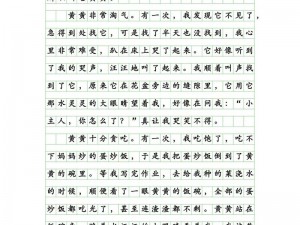 黄黄非常淘气。有一次，我发现它不见了，
急得到处找它，可是找了半天也没找到，我心
里非常难受，趴在床上哭了起来。它好像听到
了我的哭声，汪汪地叫了起来。我顺着叫声找
到了它，原来它在花盆旁边的缝隙里，它用它
那水灵灵的大眼睛望着我，好像在问我：“小
主人，你怎么了？”真让我哭笑不得。
黄黄十分贪吃。有一次，我吃饱了，吃不
下妈妈炒的蛋炒饭，于是我把蛋炒饭倒到了黄
黄的碗里。等我写完作业，去给我种的菜浇水
的时候，顺便看了一眼黄黄的饭碗，全部的蛋
炒饭都吃光了，甚至连渣都不剩。黄黄我看